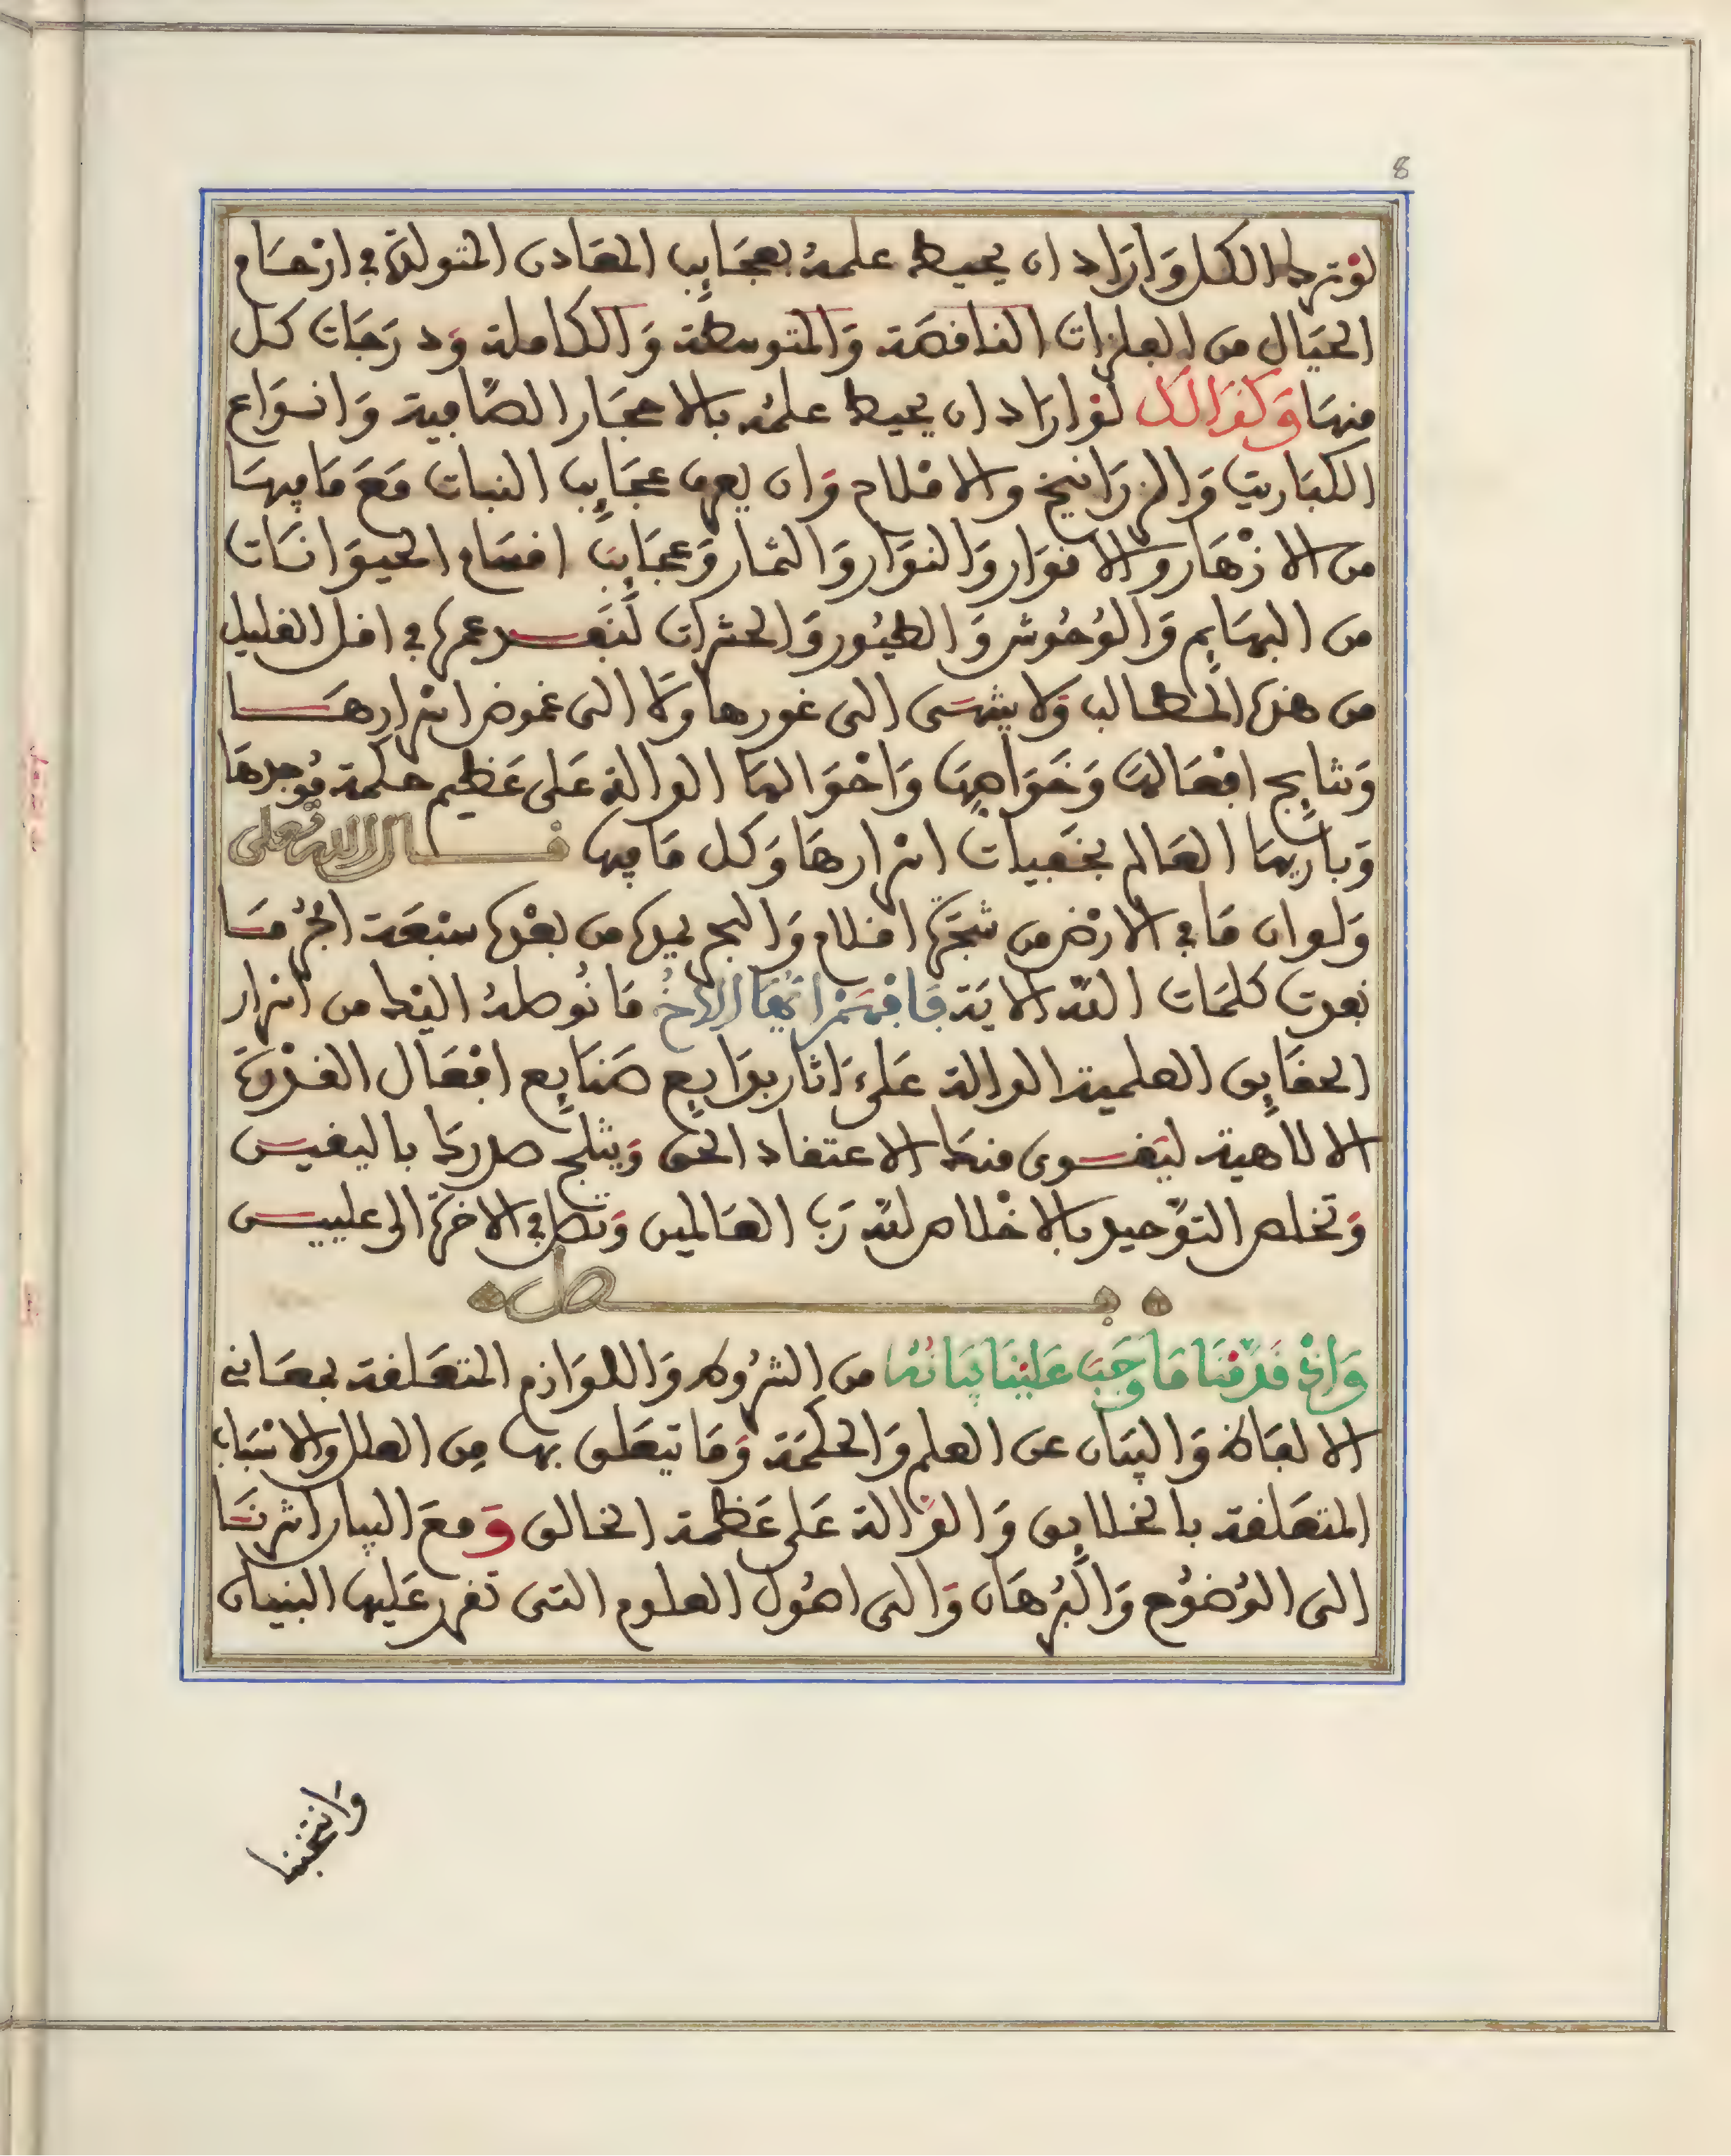 8
لو ترك الكل وَارَاد ان يحيط علمهُ بعجَايِب المعَادن المتولدة في ارْحَام
الجبَال من الفلزات الناقصَة وَالمتوسطة وَالكاملة وَدرَجَات كل
منهَا وَكذالك لو ارَاد ان يحيط علمُه بالاحجَار الصَّافية وَانوَاع
الكبَاريت وَالزرَانيخ والاملاح وَان يعرف عجَايِب النبات مَعَ مَا فيهَا
من الازْهَار والانوَار وَالنوَار وَالثمار وَعجَايِبَ اقسَام الحيوَانَات
من البهَايِم وَالوُحُوش وَالطيُور وَالحشرات لَنَفـد عمره في اقل القليل
من هذه المطالب وَلا ينتهَى الى غورها وَلا الى غموض اسرارهَـا
وَنتايِج افعَالهَا وَخَوَاصهَا وَاحْوَالهَا الدالة عَلى عَظيم حكمَة مُوجدهَا
وَباريهَا العَالم بخَفيات اسرارهَا وَكل مَا فيها قــال الله تعلى
وَلو ان مَا في الارْض من شجَرَة اقلام وَالبحر يمده من بعْده سبْعَة ابحُر مَـا
نفدت كلمَات اللّه الايَة فَافهَمْ ايُّهَا الاخُ مَا نُوصلهُ اليْك من اسْرار
الحقَايِق العلمية الدالة عَلىَ ءَاثار بدَايِع صَنَايِع افعَال القـدْرَة
الالاهية ليَقـوى منكَ الاعتقاد الحَق وَيثلج صدركَ باليقيـن
وَتخلص التوّحيد بالاخْلاص للّه رَبِّ العَالمين وَتصل في الاخرَة الى علييـن
فــــصل
وَاذْ قَدّمْنَا مَا وَجَبَ عَلَيْنَا بَيَانُهُ من الشرُوط وَاللوَازم المتعَلقة بمعَاني
الالفَاظ وَالبيَان عن العلم وَالحكمَة وَمَا تيعَلق بها مِن العلل والاسْبَاب
المتعَلقة بالخلايِق وَالدالة عَلى عَظمة الخالق وَمعَ البيان اشرنَـا
الى الوُضُوح وَالبُرهَان وَالى اصُول العلوم التى تفرر عَليها البنيان
وَانتخبنا